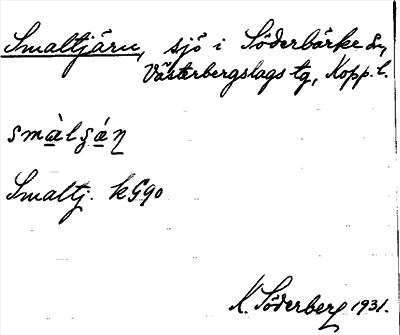 Smaltjärn, sjö i Söderbärke sn,
Västerbergslags tg, Kopp. l.
Smaltj. kG90
K. Söderberg 1931.